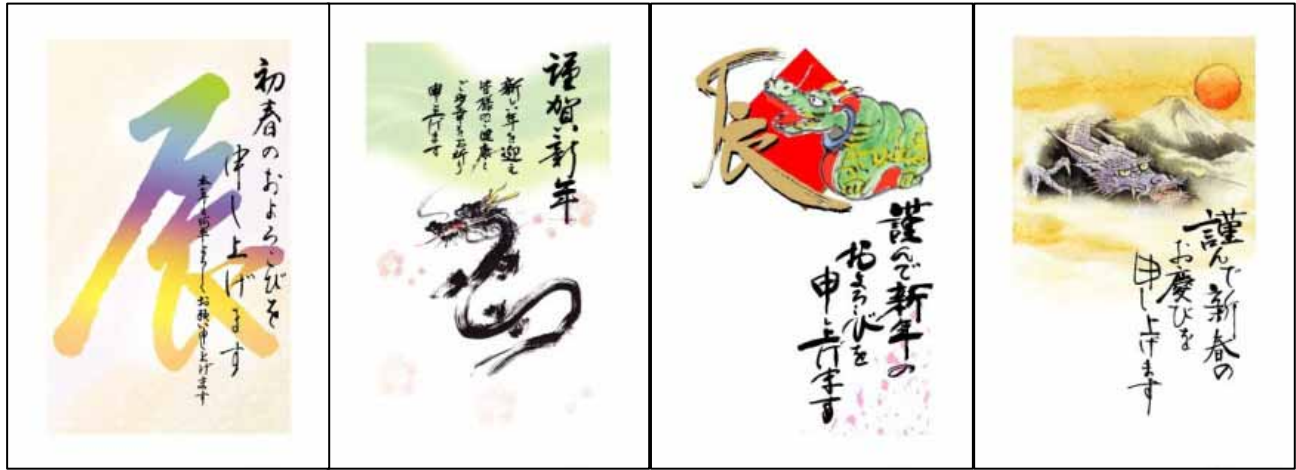 辰
初春のおよろこびを
申し上げます
本年も何卒よろしくお願い申し上げます
謹賀新年
新しい年を迎え
皆様のご健康と
ご多幸をお祈り
申し上げます
辰
謹んで新年の
およろこびを
申し上げます
謹んで新春の
お慶びを
申し上げます